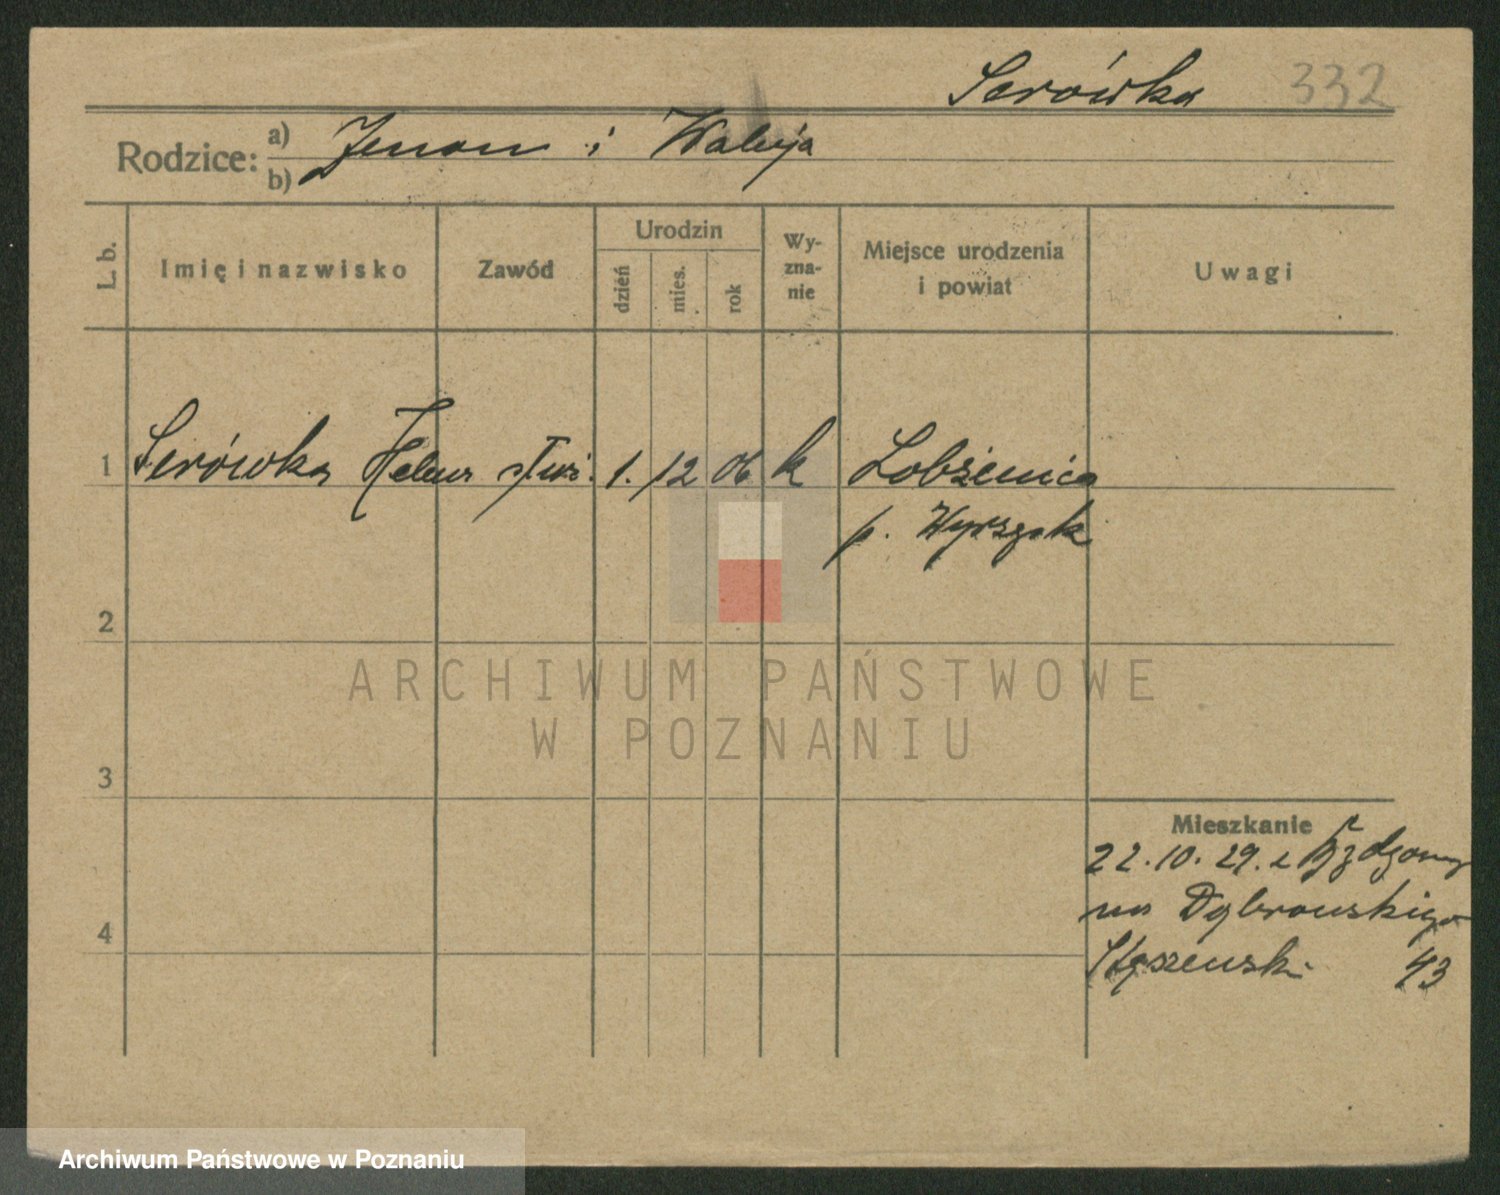 Serówka 332
Rodzice: a) Zenon i Walerja
b)
L. b. Imię i nazwisko Zawód Urodzin dzień mies. rok Wy-zna-nie Miejsce urodzenia i powiat Uwagi
1 Serówka Helena służ. 1. 12 06 k Łobżenica
p. Wyrzysk
2
3
4
Mieszkanie
22.10.29. z Bydgoszczy
na Dąbrowskiego
Stęszewski 43
ARCHIWUM PAŃSTWOWE
W POZNANIU
Archiwum Państwowe w Poznaniu